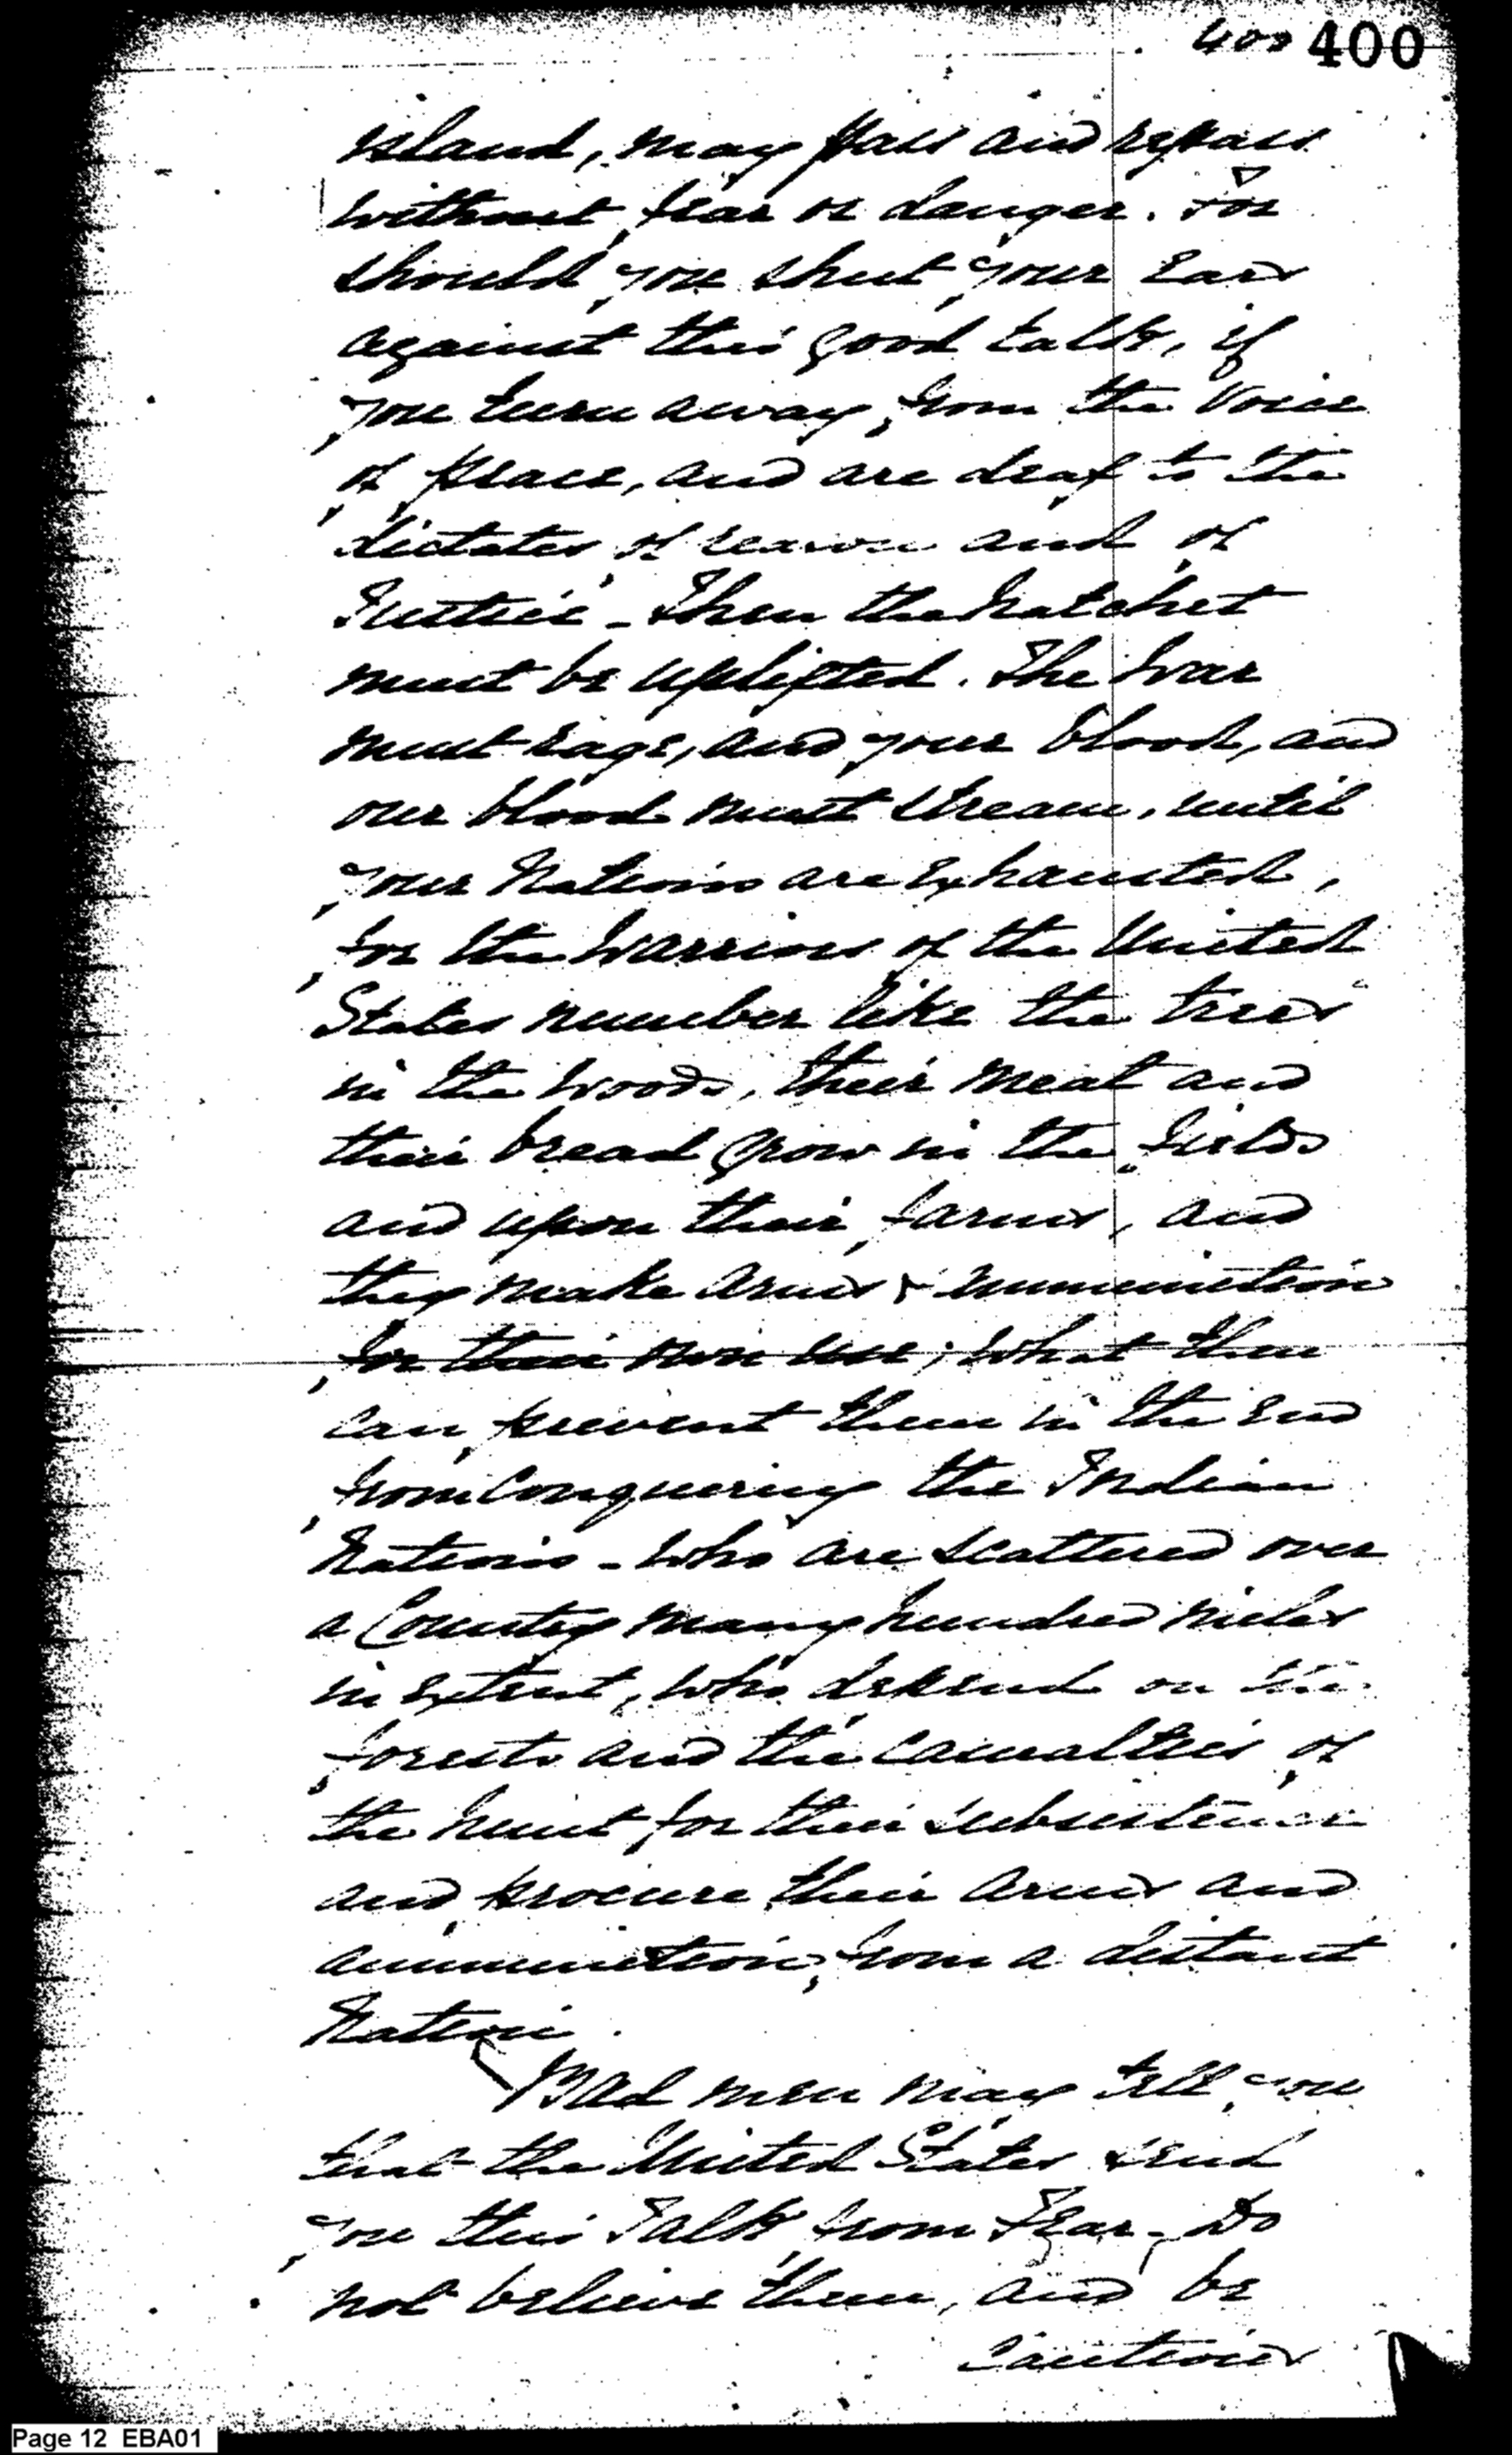 400 400
island, may pass and repass
without fear or danger. For
should you shut your Ears
against this good talk, if
you turn away from the Voice
of peace, and are deaf to the
dictates of reason and of
Justice - Then the hatchet
must be uplifted. The War
must rage, and your blood, and
our blood must stream, until
your Nations are Exhausted,
for the Warriors of the United
States number like the trees
in the Woods, their meat and
their bread grow in the fields
and upon their farms, and
they make Arms & Ammunition
for their own use; What then
can prevent them in the End
from Conquering the Indian
Nations - Who are scattered over
a Country many hundred Miles
in Extent, Who depend on the
forests and the Casualties of
the hunt for their subsistence
and procure their Arms and
ammunition from a distant
Nation.
Bad men may tell you
that the United States send
you this Talk from Fear - Do
not believe them, and be
Cautious
Page 12 EBA01